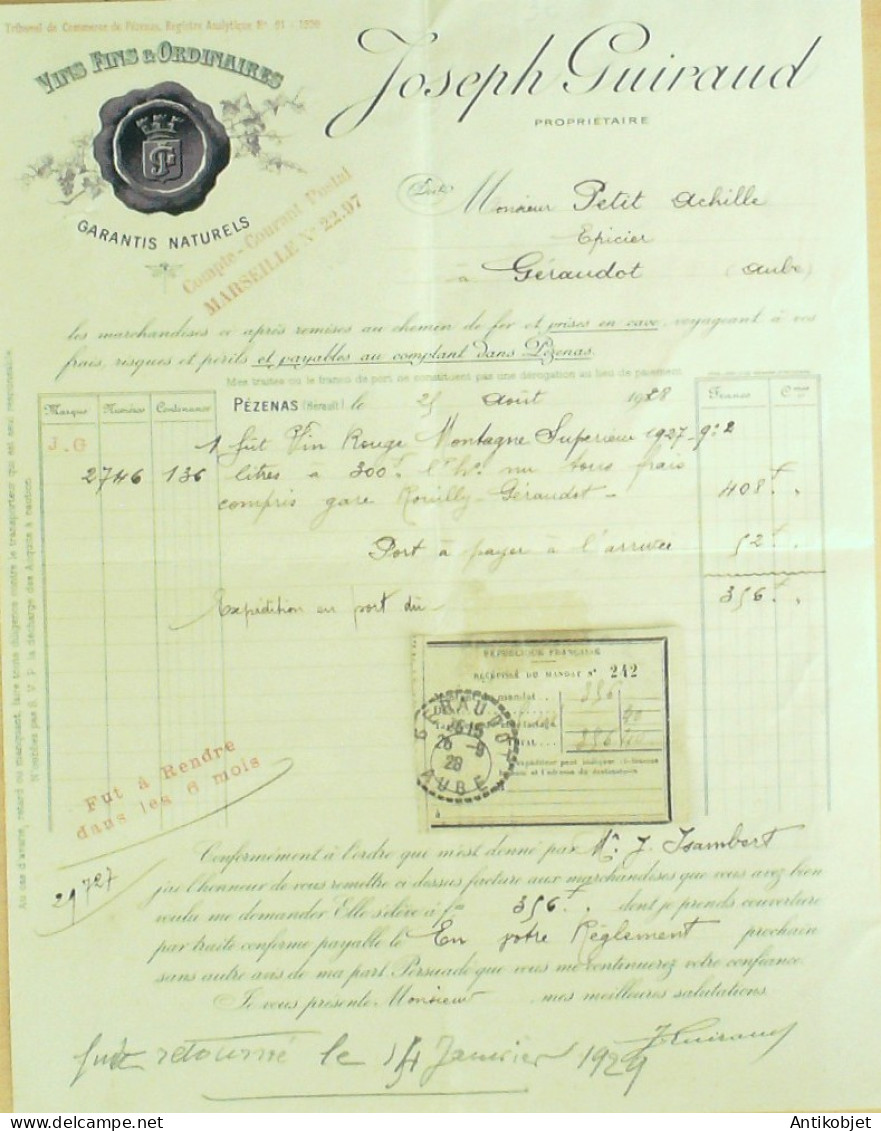 Tribunal de Commerce de Pézenas, Registre Analytique N° 81 - 1220
VINS FINS & ORDINAIRES
GARANTIS NATURELS
Joseph Guiraud
PROPRIÉTAIRE
Compte-Courant Postal
MARSEILLE N° 22.97
Doit
Monsieur Petit Achille
Epicier
à Géraudot (Aube)
les marchandises ci après remises au chemin de fer et prises en cave, voyageant à vos
frais, risques et périls et payables au comptant dans Pézenas.
Mes traites ou le franco de port ne constituent pas une dérogation au lieu de paiement
Marque Numéros Contenance PÉZENAS (Hérault) le 25 Août 1928 Francs Cmes
J.G 1 fût Vin Rouge Montagne Supérieur 1927 - 9°2
2746 136 litres à 300f l'ho nu tous frais
compris gare Rouilly-Géraudot - 408f "
Port à payer à l'arrivée 52f "
Expédition en port dû - 356f "
RÉPUBLIQUE FRANÇAISE
RÉCÉPISSÉ DU MANDAT N° 242
mandat 356
356
GERAUDOT
26 - 9
28
AUBE
Fut à Rendre
dans les 6 mois
Au cas d'avarie, retard ou manquant, faire toute diligence contre le transporteur qui est seul responsable
N'oubliez pas S. V. P. la décharge des Acquits à caution.
Conformément à l'ordre que m'est donné par Mr J. Isambert
j'ai l'honneur de vous remettre ci-dessus facture aux marchandises que vous avez bien
voulu me demander. Elle s'élève à f= 356f " dont je prends couverture
par traite conforme payable le En votre Règlement prochain
sans autre avis de ma part. Persuadé que vous me continuerez votre confiance.
Je vous présente Monsieur mes meilleures salutations
J Guiraud
retourné le 14 Janvier 1929
Antikobjet